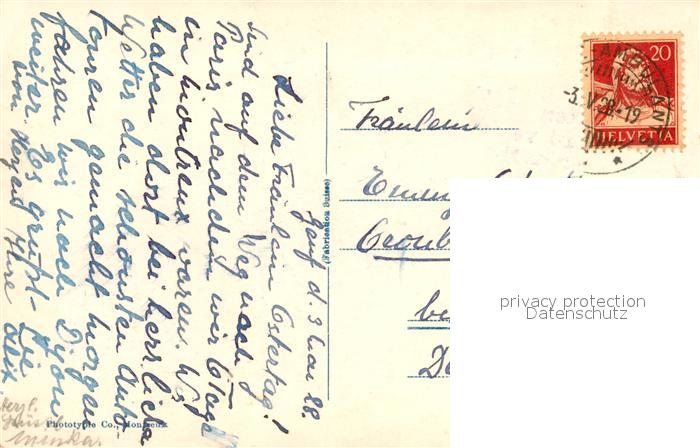 Genf d. 3 Mai 28.
Liebe Fräulein Ostertag!
Sind auf dem Weg nach
Paris nachdem wir 6 Tage
in Montreux waren. Wir
haben dort bei herrlichem
Wetter die schönsten Auto-
touren gemacht morgen
fahren wir nach Dijon
weiter. Es grüßt Sie
von Herzen Ihre
Herzl.
Phototypie Co., Montreux
(Fabrication Suisse)
Fräulein
Cronb
be
AMBULANT
3.V.28.-19
20
HELVETIA
privacy protection
Datenschutz